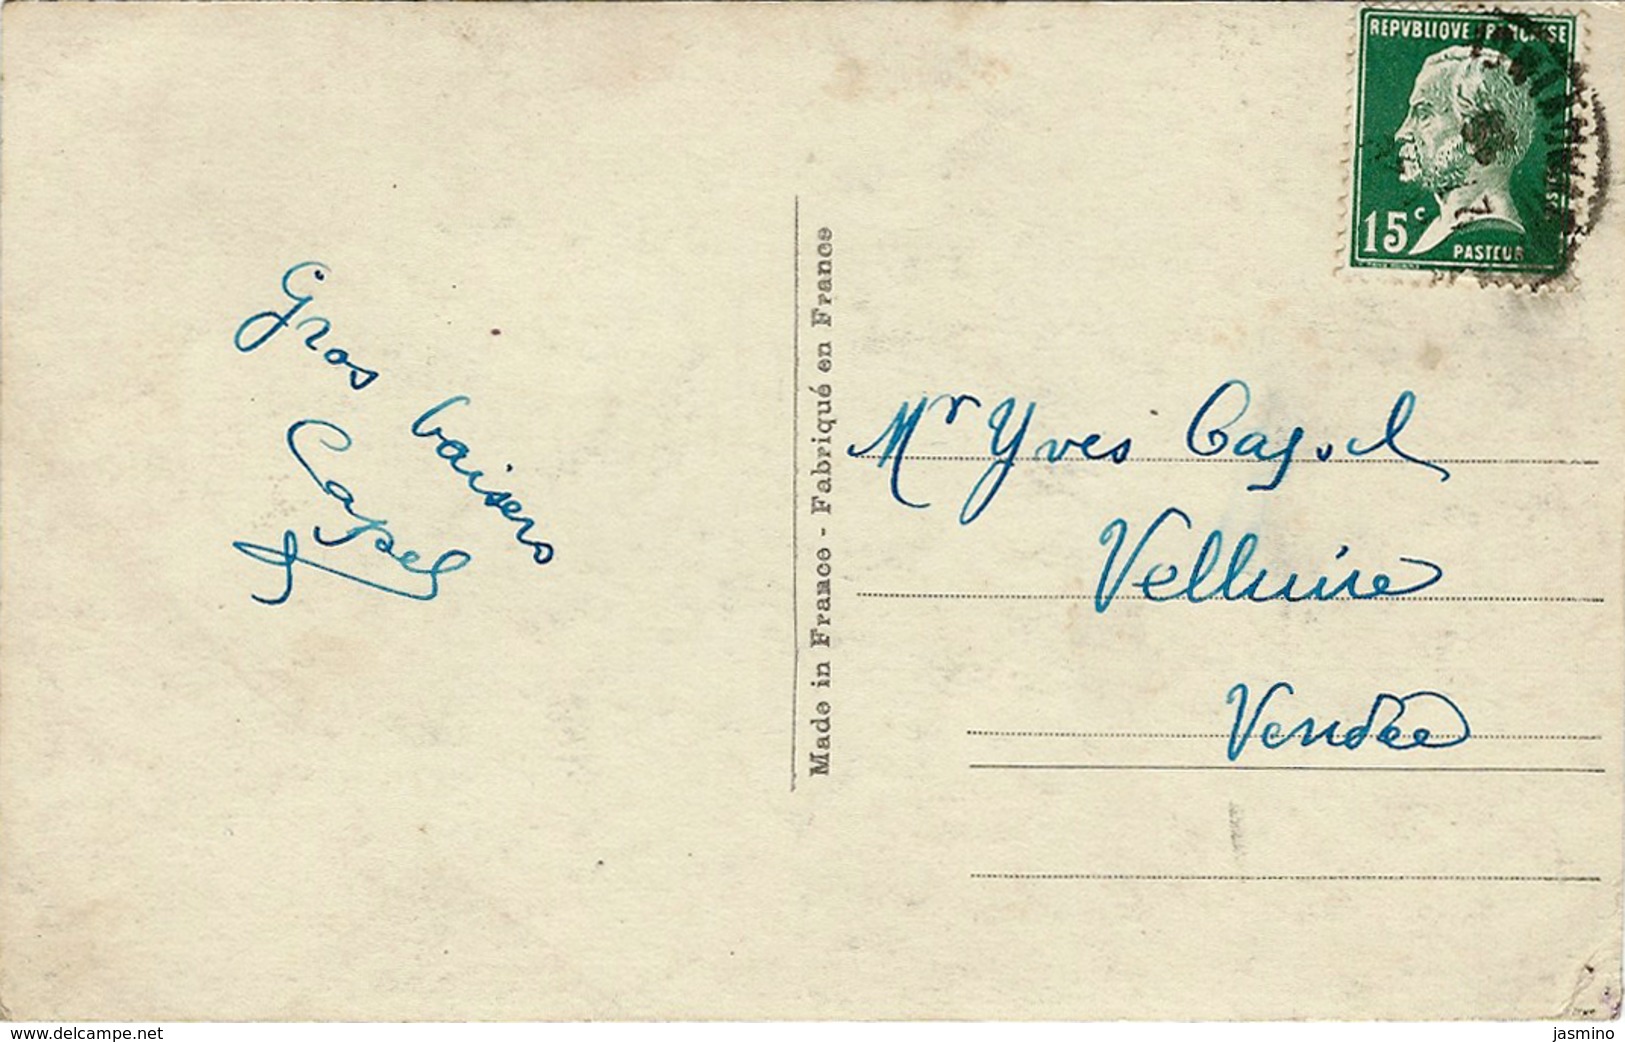 Gros baisers
Capel
Made in France - Fabriqué en France
REPVBLIQVE FRANÇAISE
15c
PASTEUR
Mr Yves
Velluire
Vendée
www.delcampe.net
jasmino